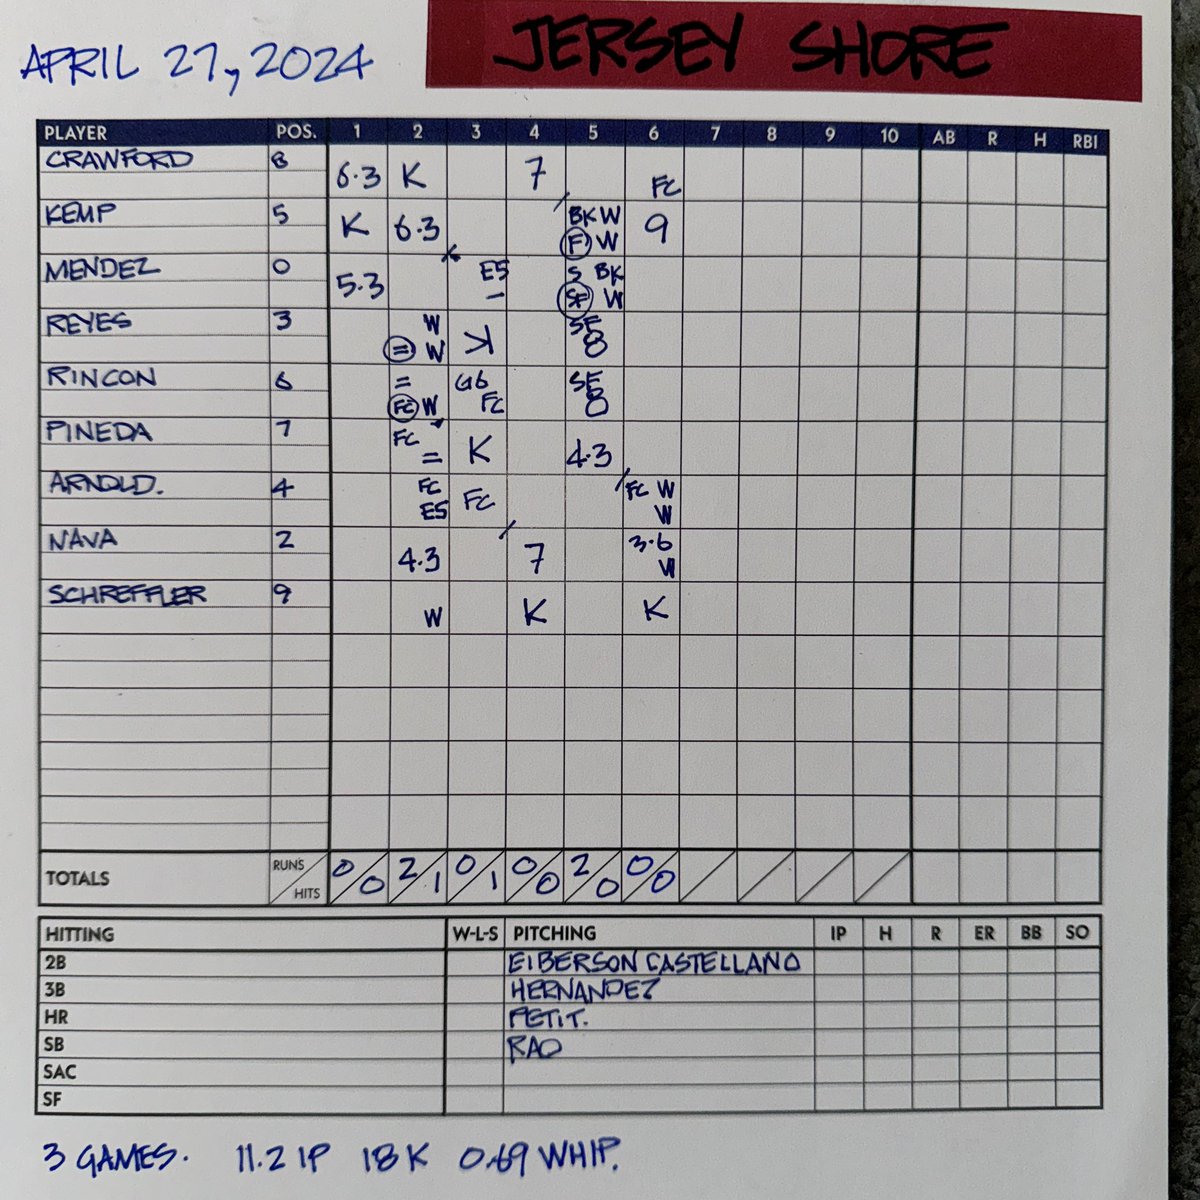 JERSEY SHORE
APRIL 27, 2024
PLAYER POS. 1 2 3 4 5 6 7 8 9 10 AB R H RBI
CRAWFORD 8 6.3 K 7 FC
KEMP 5 K 6.3 BK W 9
F W
MENDEZ 0 5.3 E5 S BK
– SF W
REYES 3 W K SF
= W 8
RINCON 6 = G6 SF
FC W FC 8
PINEDA 7 FC K 4.3
=
ARNOLD. 4 FC FC FC W
E5 W
NAVA 2 4.3 7 3.6
W
SCHREFFLER 9 W K K
TOTALS RUNS/HITS 0/0 2/1 0/1 0/0 2/0 0/0
HITTING W-L-S PITCHING IP H R ER BB SO
2B EIBERSON CASTELLANO
3B HERNANDEZ
HR PETIT.
SB RAO
SAC
SF
3 GAMES. 11.2 IP 18 K 0.69 WHIP.